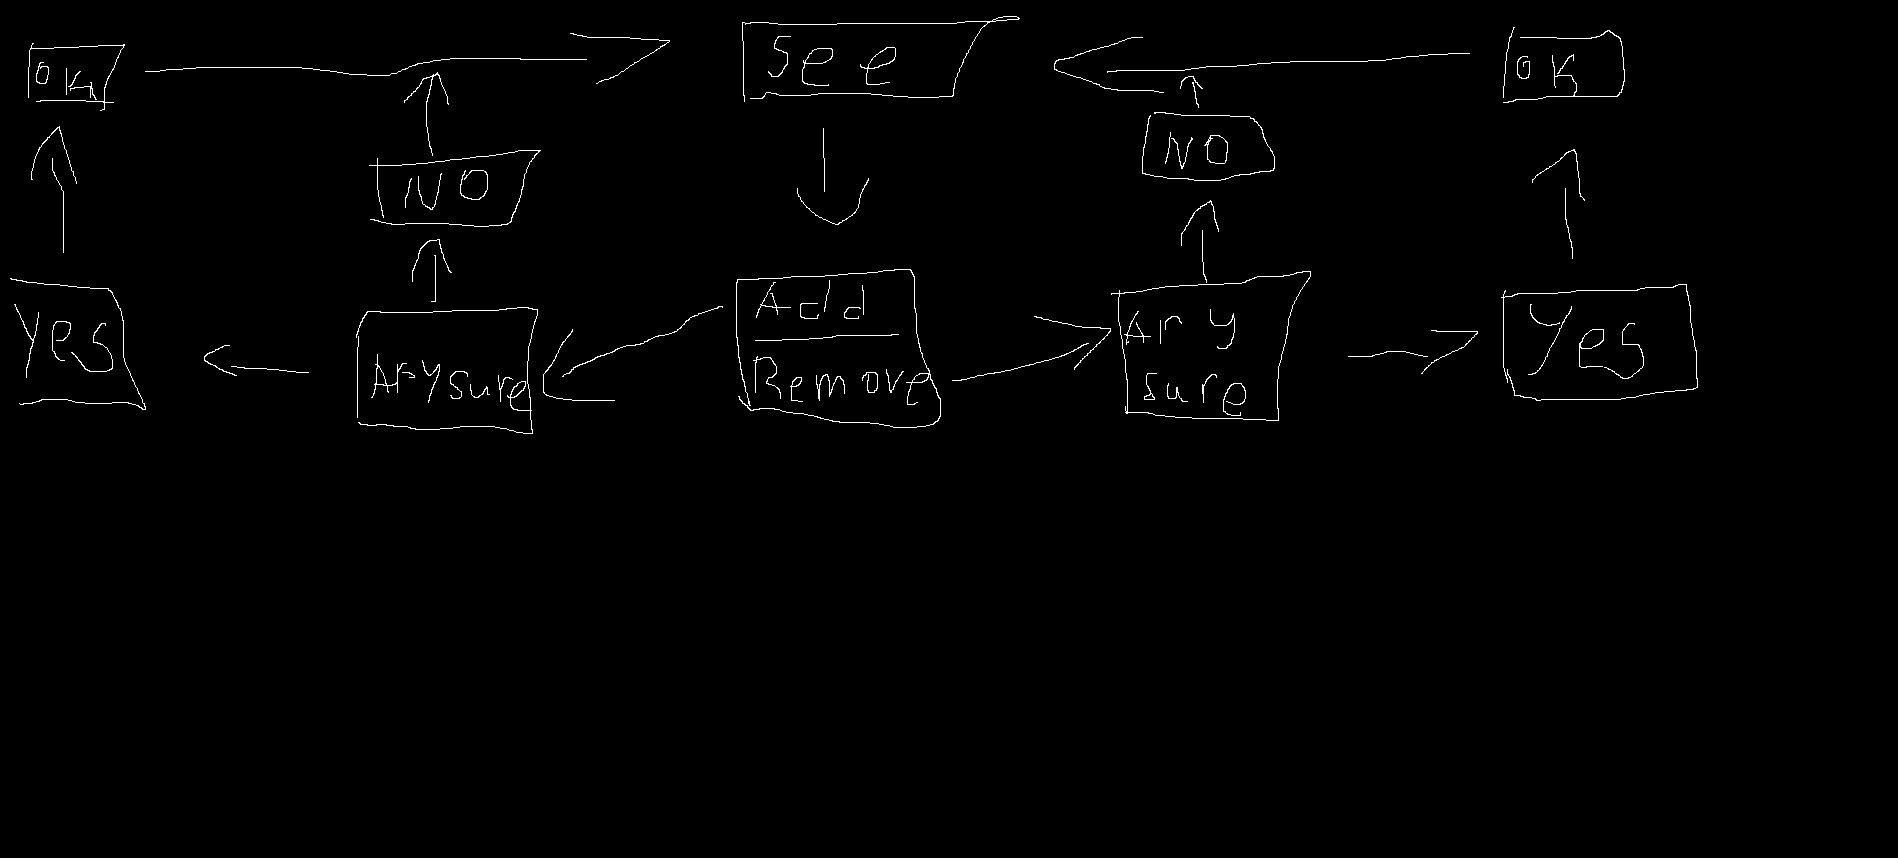 OK
See
OK
NO
NO
Yes
Ary sure
Add
Remove
Ary
sure
Yes